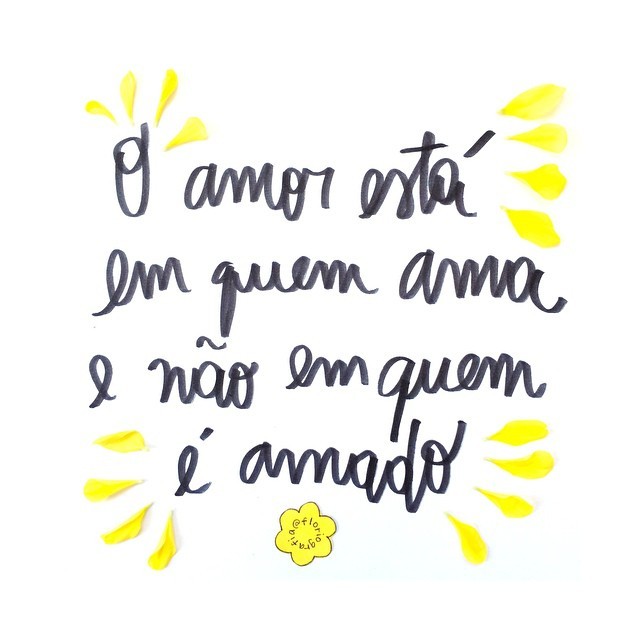 O amor está
em quem ama
e não em quem
é amado
@floriografia